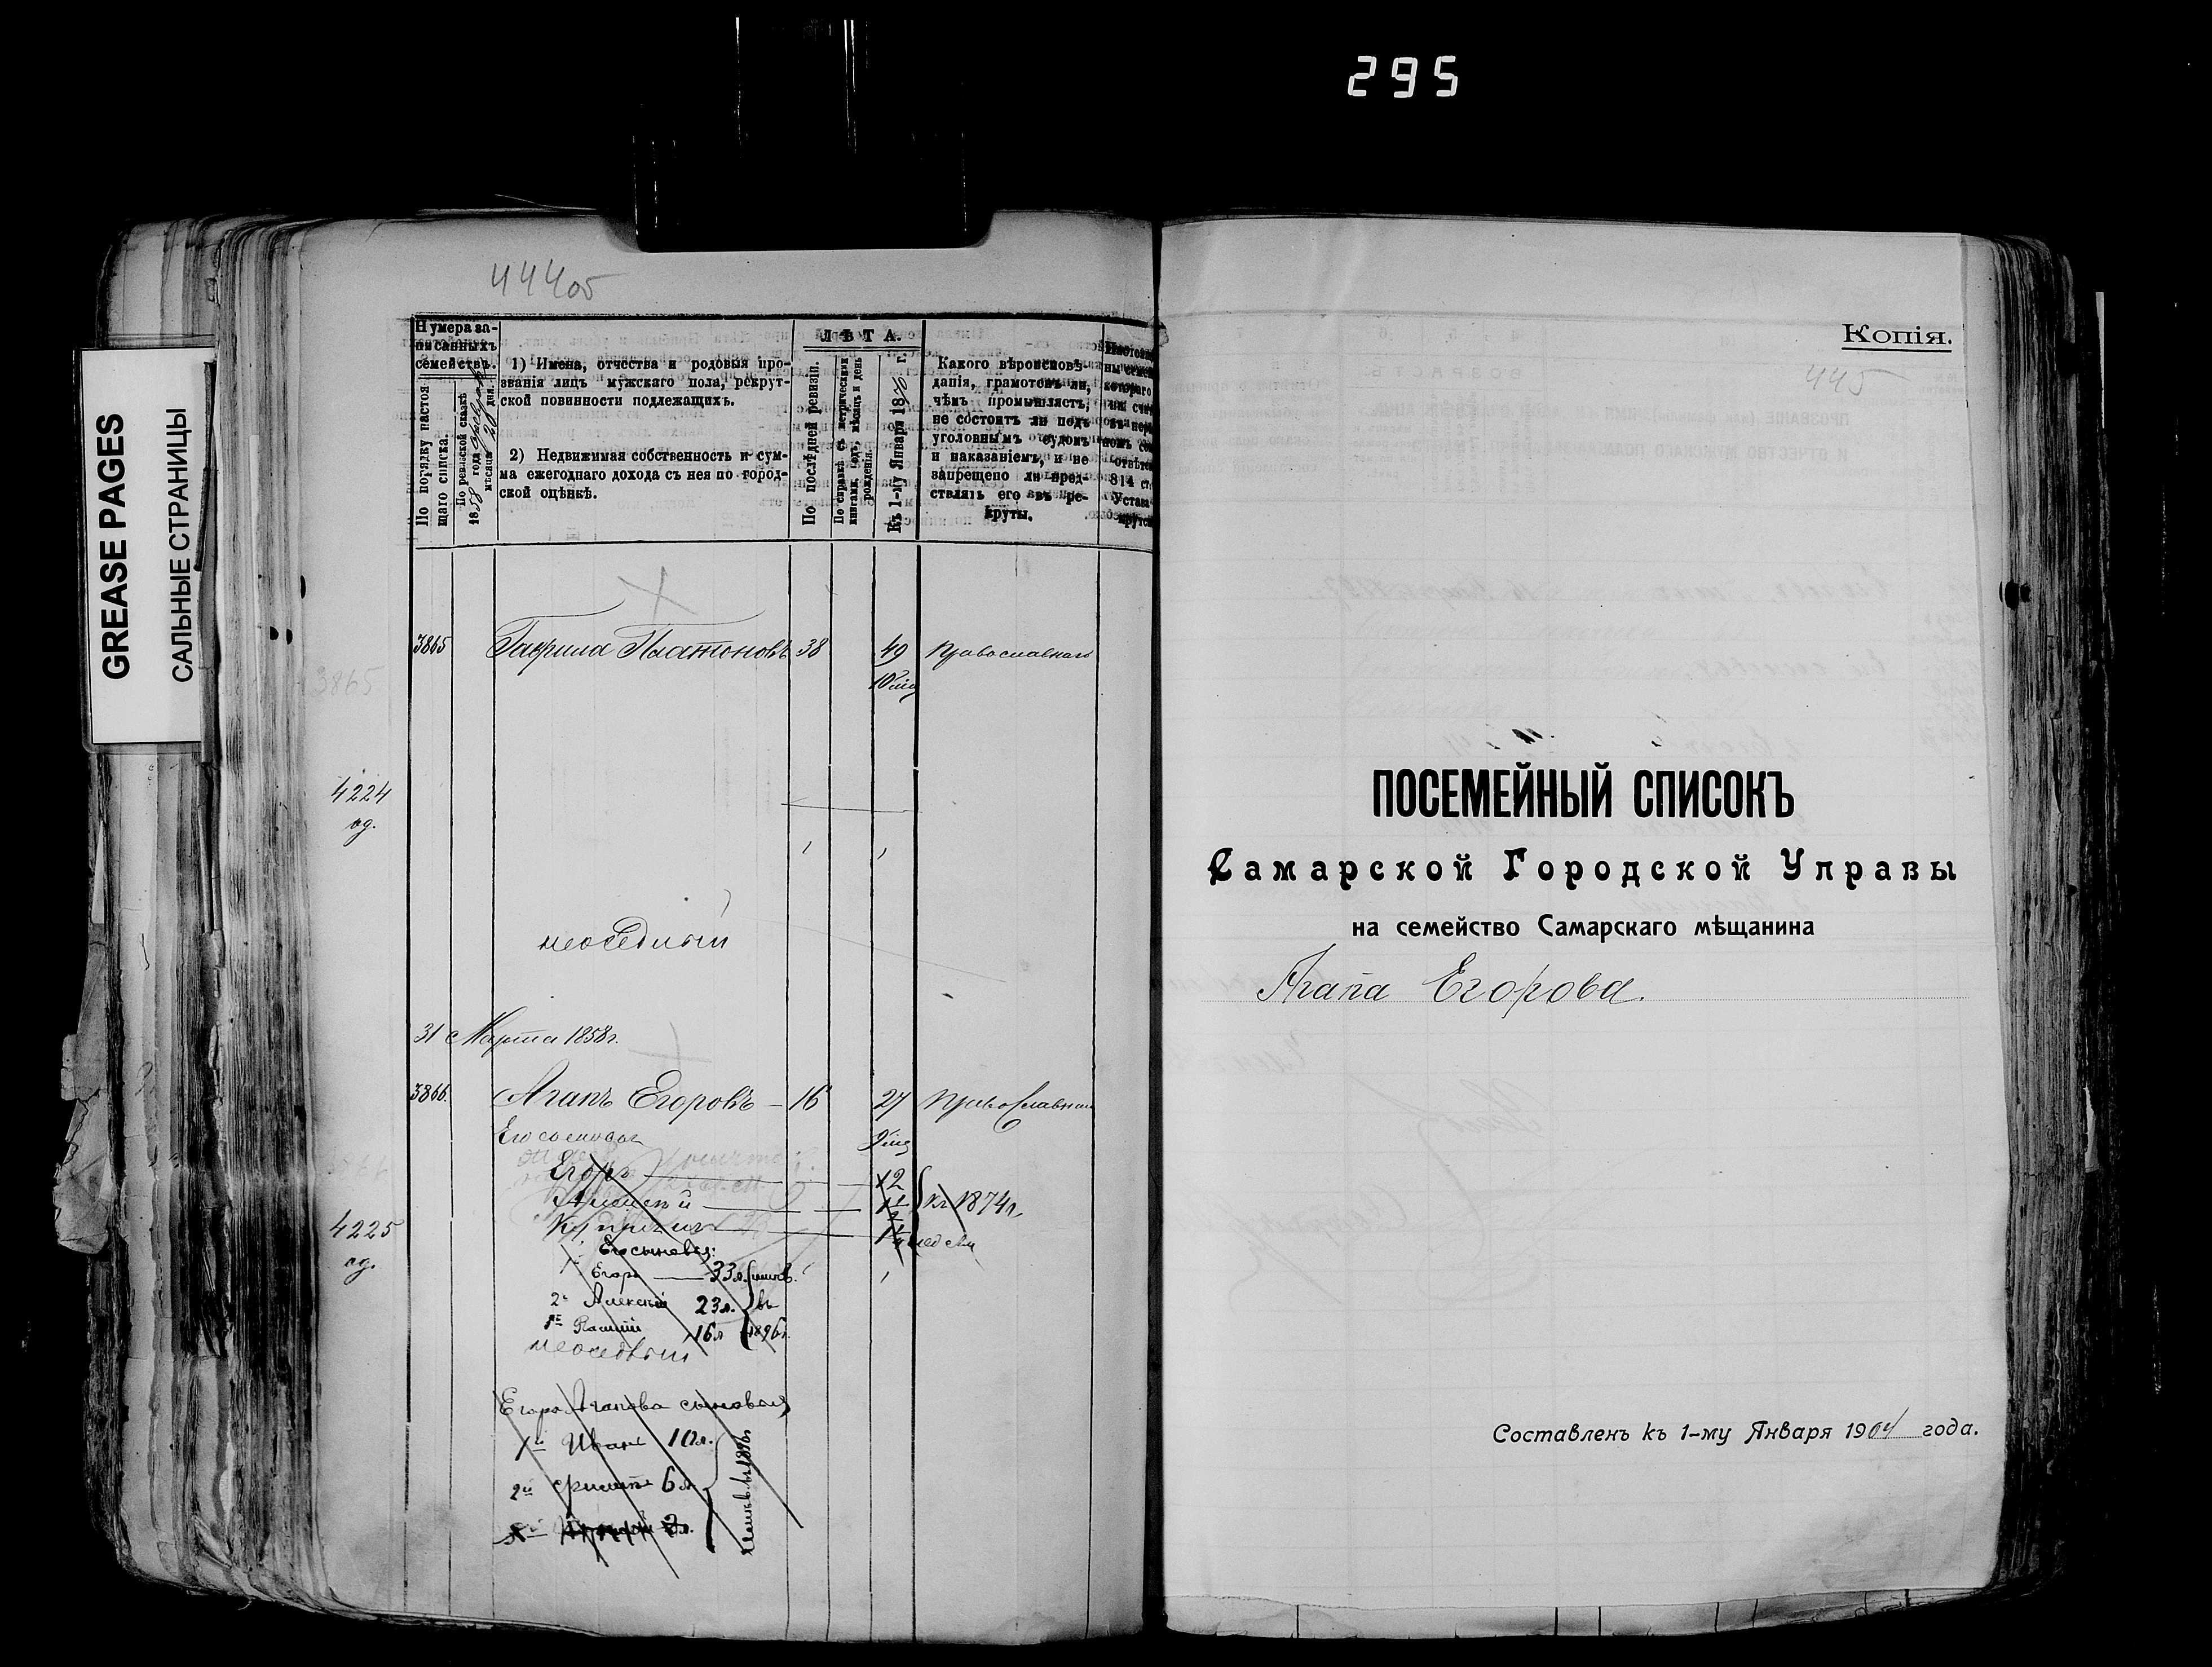 295
GREASE PAGES
САЛЬНЫЕ СТРАНИЦЫ
444об
Нумера за-
писанныхъ
семействъ.
По порядку настоя
щаго списка.
По ревизской сказкѣ
1858 года
мѣсяца 20 дня.
1) Имена, отчества и родовыя про-
званія лицъ мужскаго пола, рекрут-
ской повинности подлежащихъ.
2) Недвижимая собственность и сум-
ма ежегоднаго дохода съ нея по город-
ской оцѣнкѣ.
ЛѢТА.
По послѣдней ревизіи.
По справкѣ съ метрическими
книгами, годъ, мѣсяцъ и день
рожденія.
Къ 1-му Января 1870 г.
Какого вѣроисповѣ-
данія, грамотенъ ли,
чѣмъ промышляетъ,
не состоитъ ли подъ
уголовнымъ судомъ
и наказаніемъ, и не
запрещено ли пред-
ставлять его въ ре-
круты.
3865 Гаврила Платоновъ 38 49 православнаго
10 мѣс
3865
4224
од.
неоседлый
31 Марта 1858 г.
3866. Агапъ Егоровъ 16 27 Православнаго
Его сыновья 9 мѣс
Егоръ 12
Алексѣй 1874 г.
4225
од.
Его сыновья:
1й Егоръ 33 л.
2й Алексѣй 23 л. въ
16 л. 1896 г.
неоседлый
Егора Агапова сыновья
1й Иванъ 10 л.
2й Филиппъ 6 л.
Копія.
445
ПОСЕМЕЙНЫЙ СПИСОКЪ
Самарской Городской Управы
на семейство Самарскаго мѣщанина
Агапа Егорова.
Составленъ къ 1-му Января 1904 года.